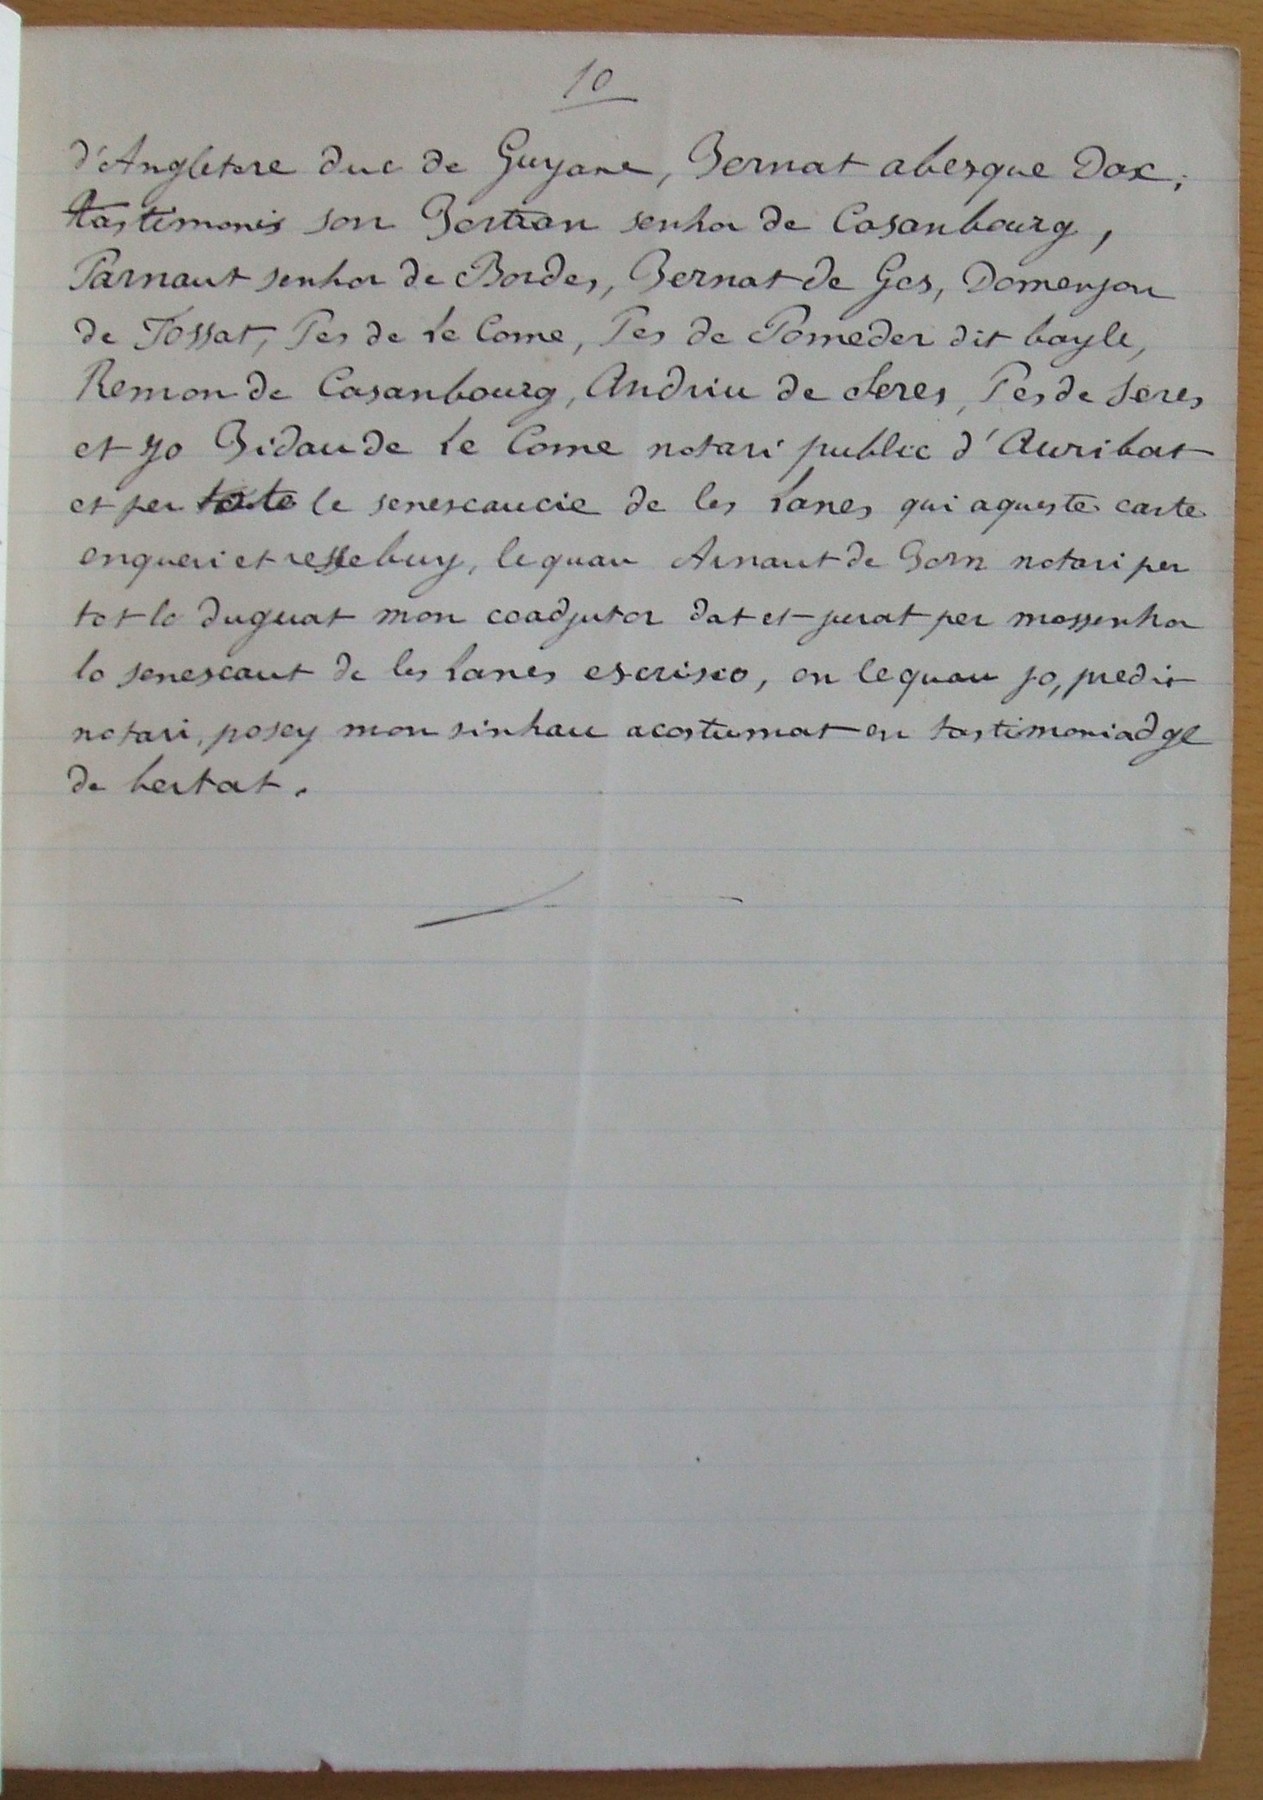 10
d'Angletere duc de Guyane, Bernat abesque Dax;
tastimonis son Bertran senhor de Casanbourg,
Parnaut senhor de Bordes, Bernat de Gos, Domenjon
de Tossat, Pes de Le Come, Pes de Pomeder dit bayle,
Remon de Casanbourg, Andriu de Seres, Pes de Seres
et yo Bidau de Le Come notari public d'Auribat
et per tote le senescaucie de les Lanes qui aqueste carte
enqueri et ressebuy, lequau Arnaut de Born notari per
tot lo duguat mon coadjutor dat et jurat per mossenhor
lo senescaut de les Lanes escrisco, en lequau jo, predit
notari, posey mon sinhau acostumat en tastimoniadge
de bertat.